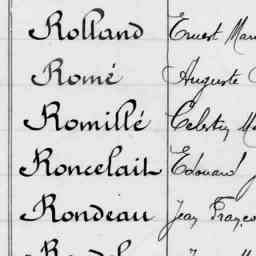 Rolland Ernest
Romé Auguste
Romillé Celestin
Roncelait Edouard
Rondeau Jean